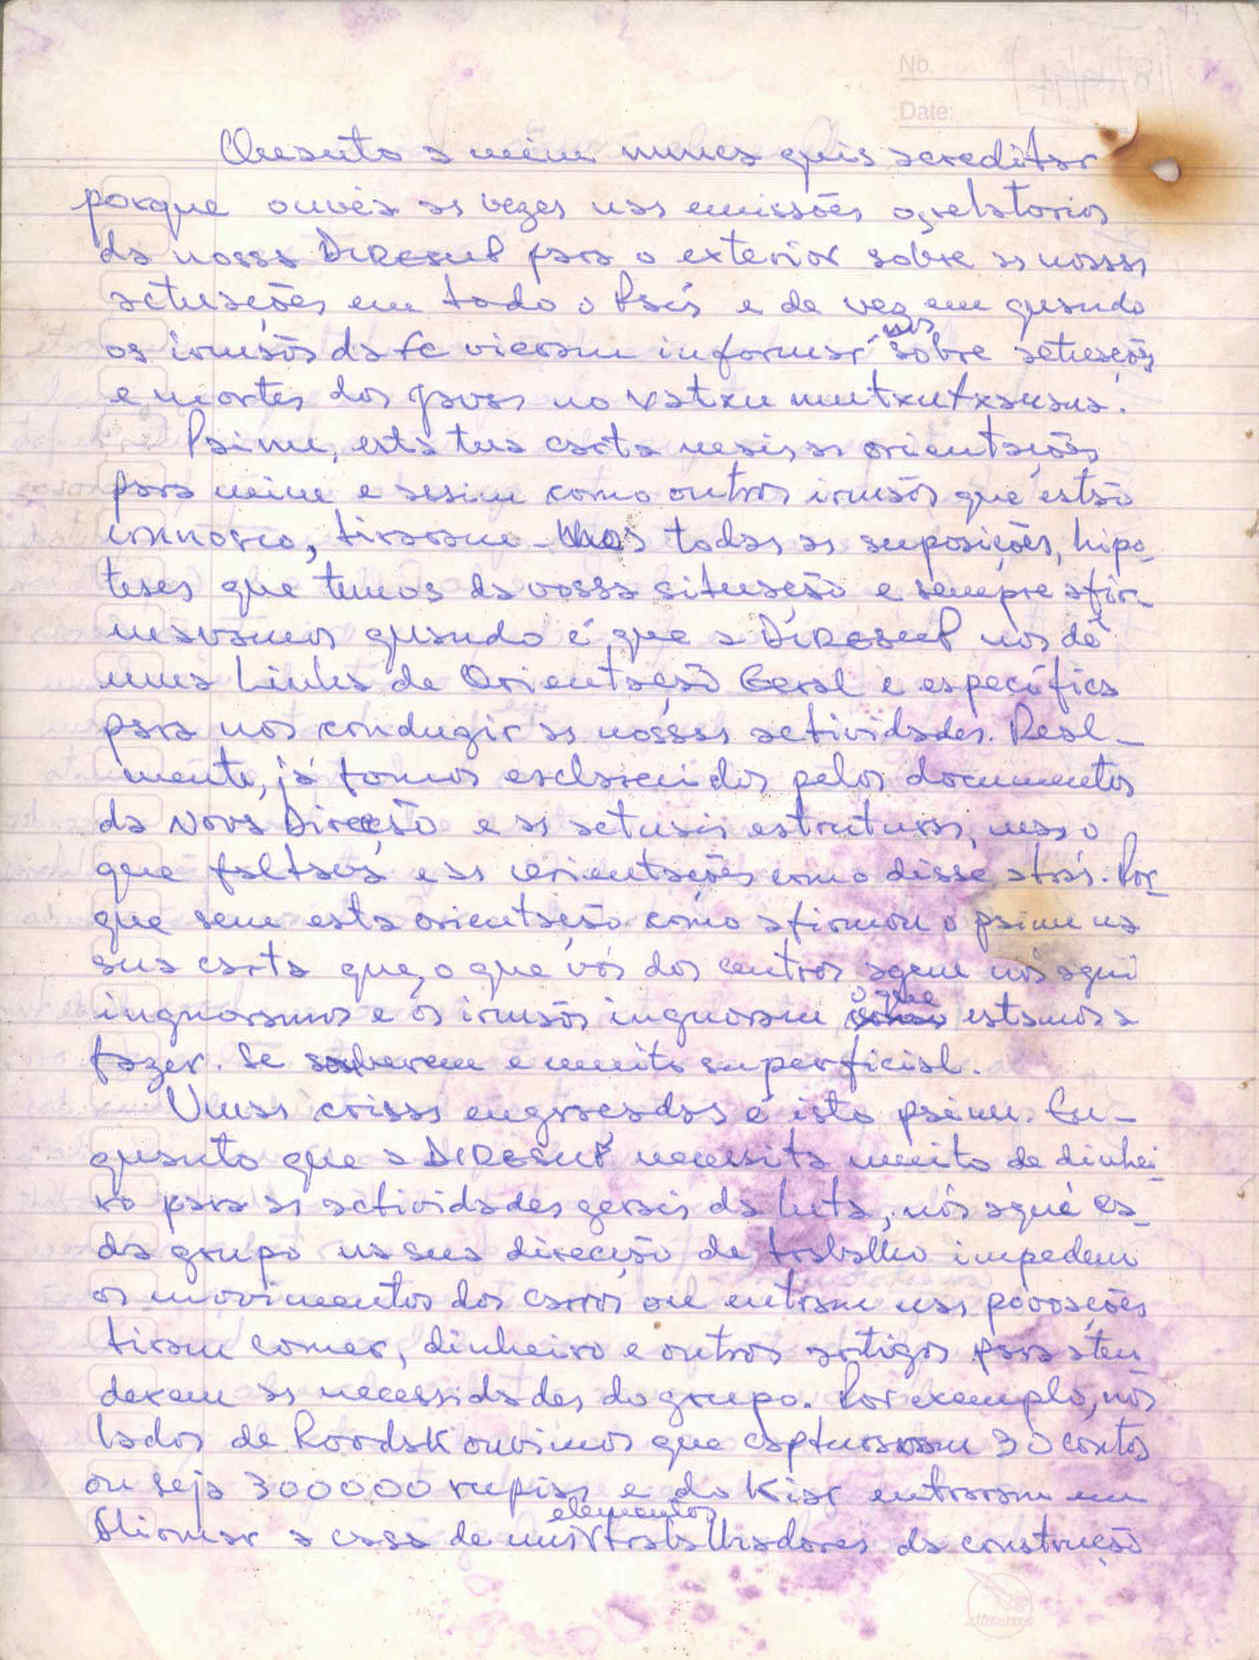 No.
Date:
Quanto a mim nunca quis acreditar
porque ouvia as vezes nas emissões os relatorios
da nossa DiReSup para o exterior sobre as nossas
actuações em todo o País e de vez em quando
os irmãos da FC vieram informar nos sobre actuações
e mortes dos javas no
Paimu, esta tua carta mais as orientações
para mim e assim como outros irmãos que estão
connosco, tiraram-nos todas as suposições, hipo-
teses que temos da vossa situação e sempre afir-
mavamos quando é que a DiReSup nos dê
uma Linha de Orientação Geral e específica
para nos conduzir as nossas actividades. Real-
mente, já fomos esclarecidos pelos documentos
da Nova Direcção e as actuais estruturas, mas o
que faltava e as orientações como disse atrás. Por-
que sem esta orientação como afirmou o paimu na
sua carta que, o que vós dos centros agem nós aqui
inguoramos e os irmãos inguoram o que estamos a
fazer. Se souberem e muito superficial.
Umas coisas engraçadas é isto paimu. En-
quanto que a DIRESUP necessita muito de dinhei-
ro para as actividades gerais da luta, nós aqui ca-
da grupo na sua direcção de trabalho impedem
os movimentos dos carros ou entram nas povoações
tiram comer, dinheiro e outros artigos para aten
derem as necessidades do grupo. Por exemplo, nos
lados de capturaram 30 contos
ou seja 300000 rupias e do Kiar entraram em
a casa de uns elementos trabalhadores da construção